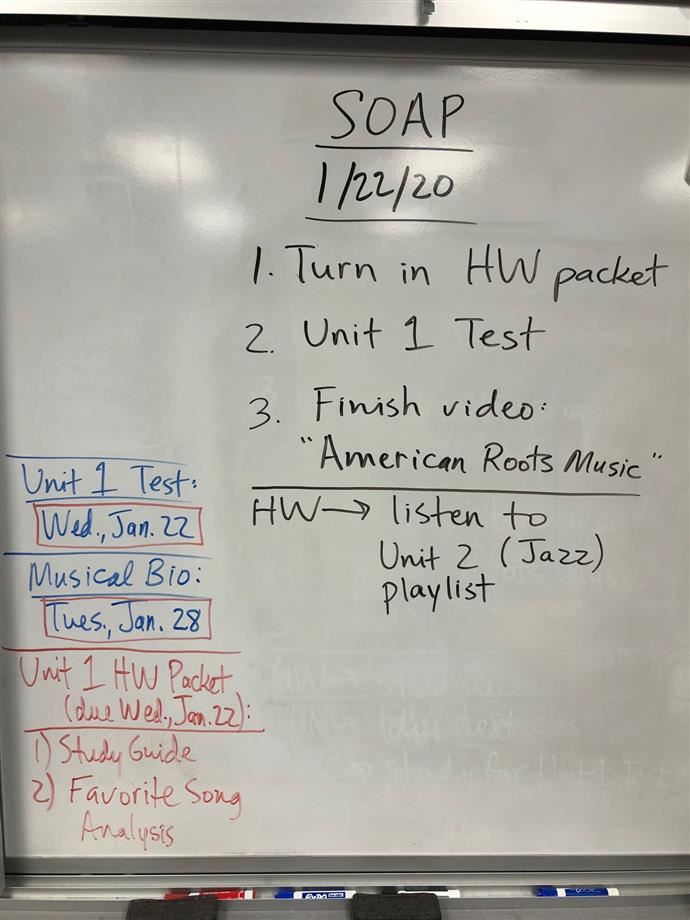 SOAP
1/22/20
1. Turn in HW packet
2. Unit 1 Test
3. Finish video:
"American Roots Music"
HW → listen to
Unit 2 (Jazz)
playlist
Unit 1 Test:
Wed., Jan. 22
Musical Bio:
Tues., Jan. 28
Unit 1 HW Packet
(due Wed., Jan. 22):
1) Study Guide
2) Favorite Song
Analysis
HW → HW packe
HW → (due next class
→ Study for Unit 1 Test
EXPO